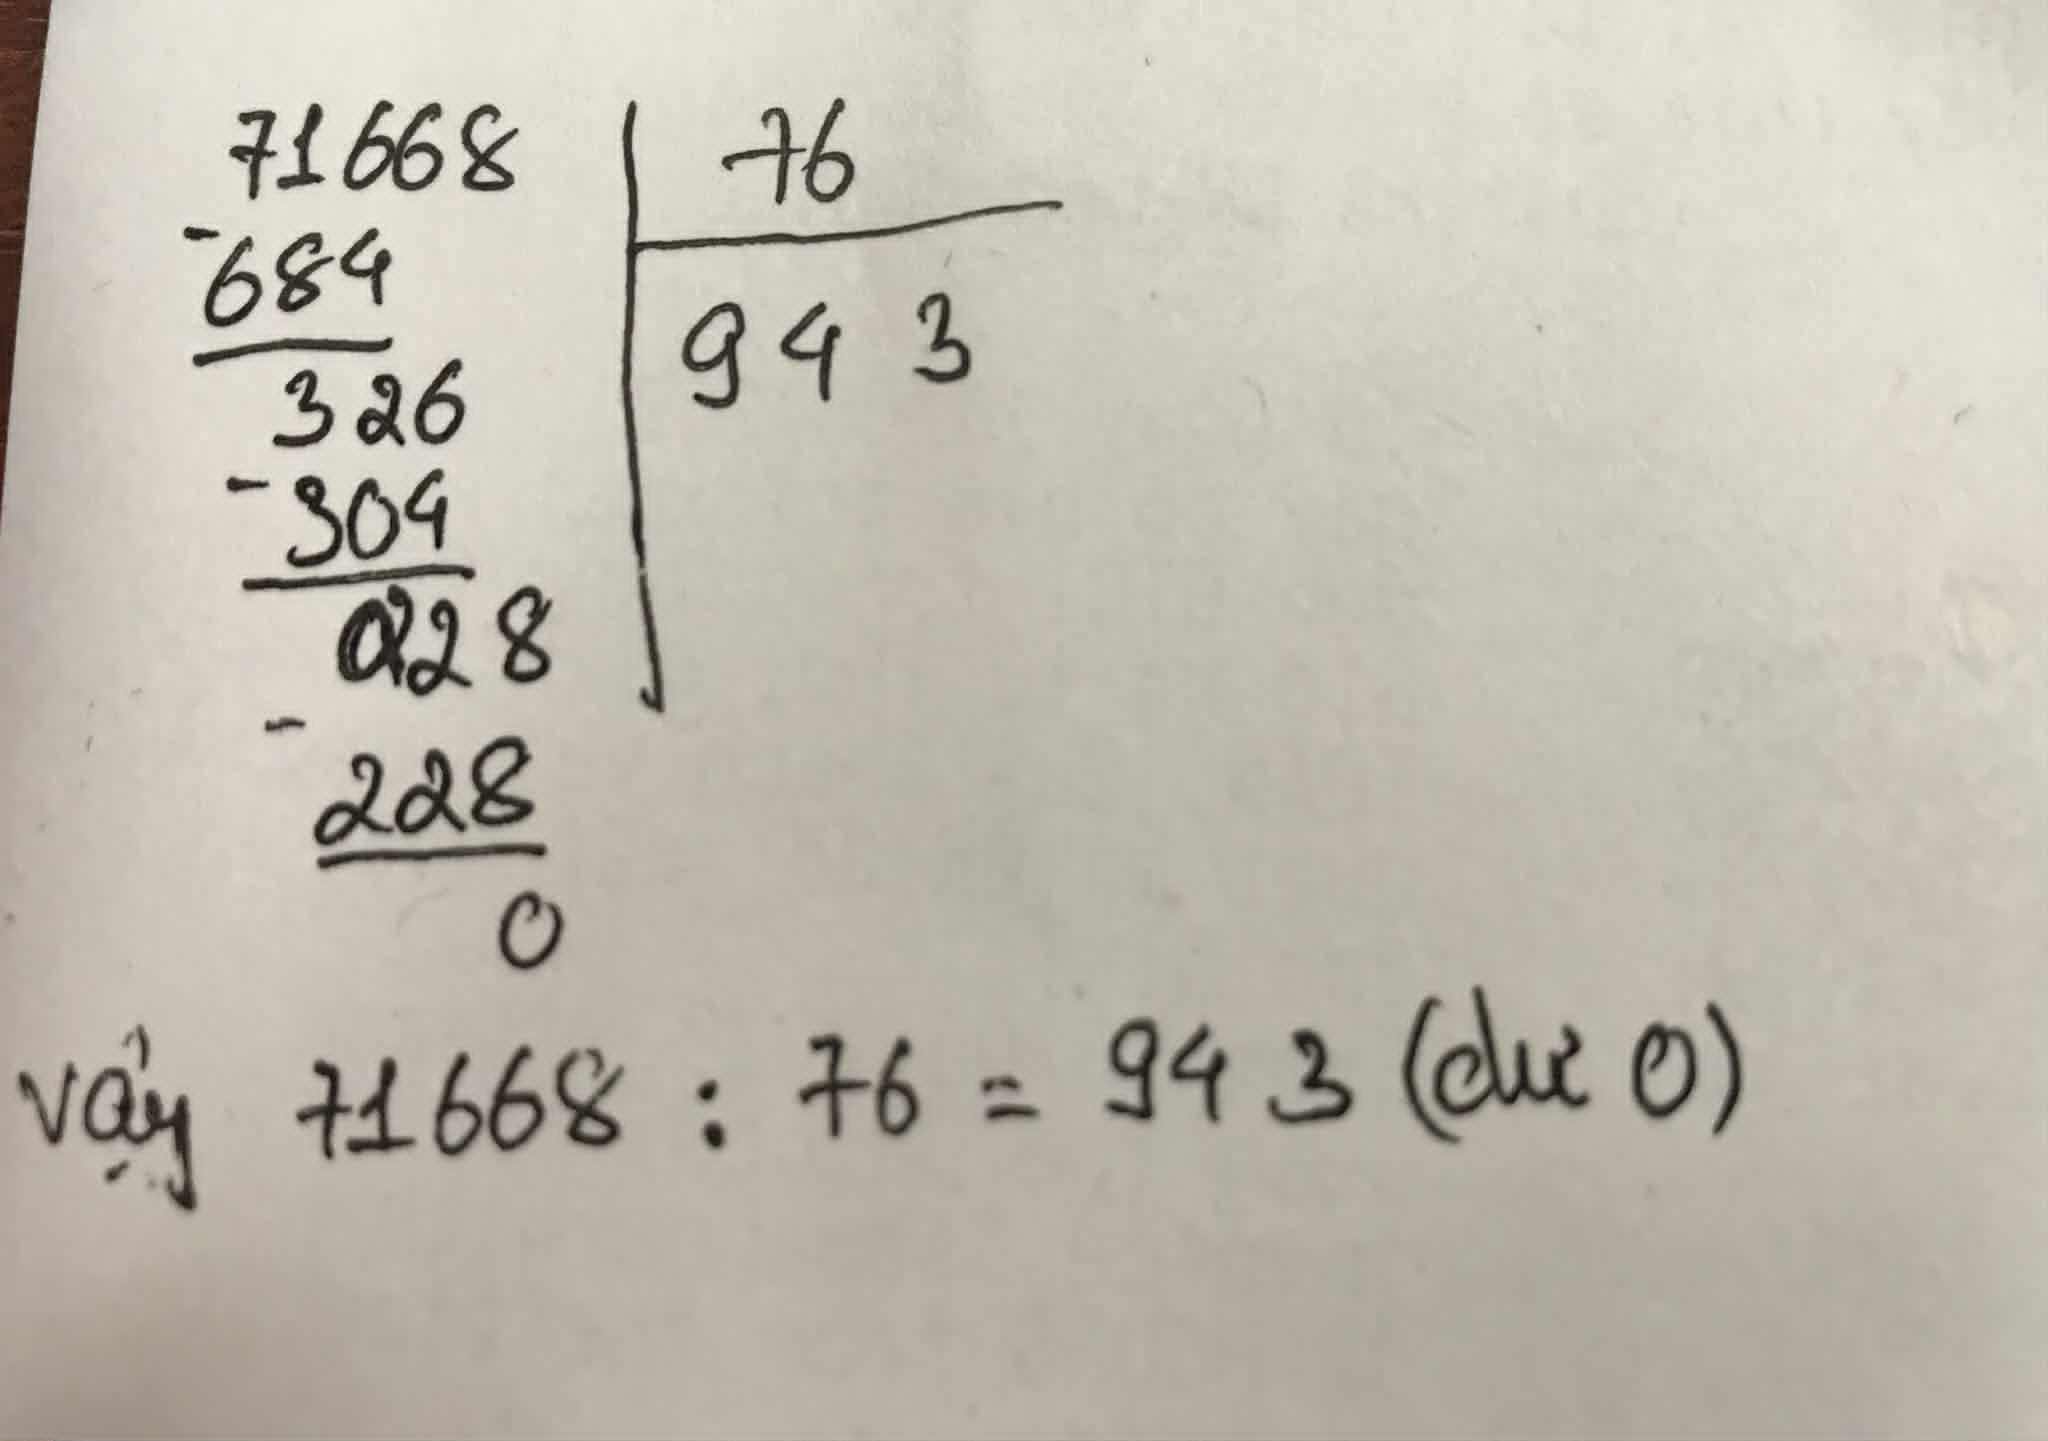 71668 76
-684 943
326
-304
0228
-228
0
vậy 71668 : 76 = 943 (dư 0)